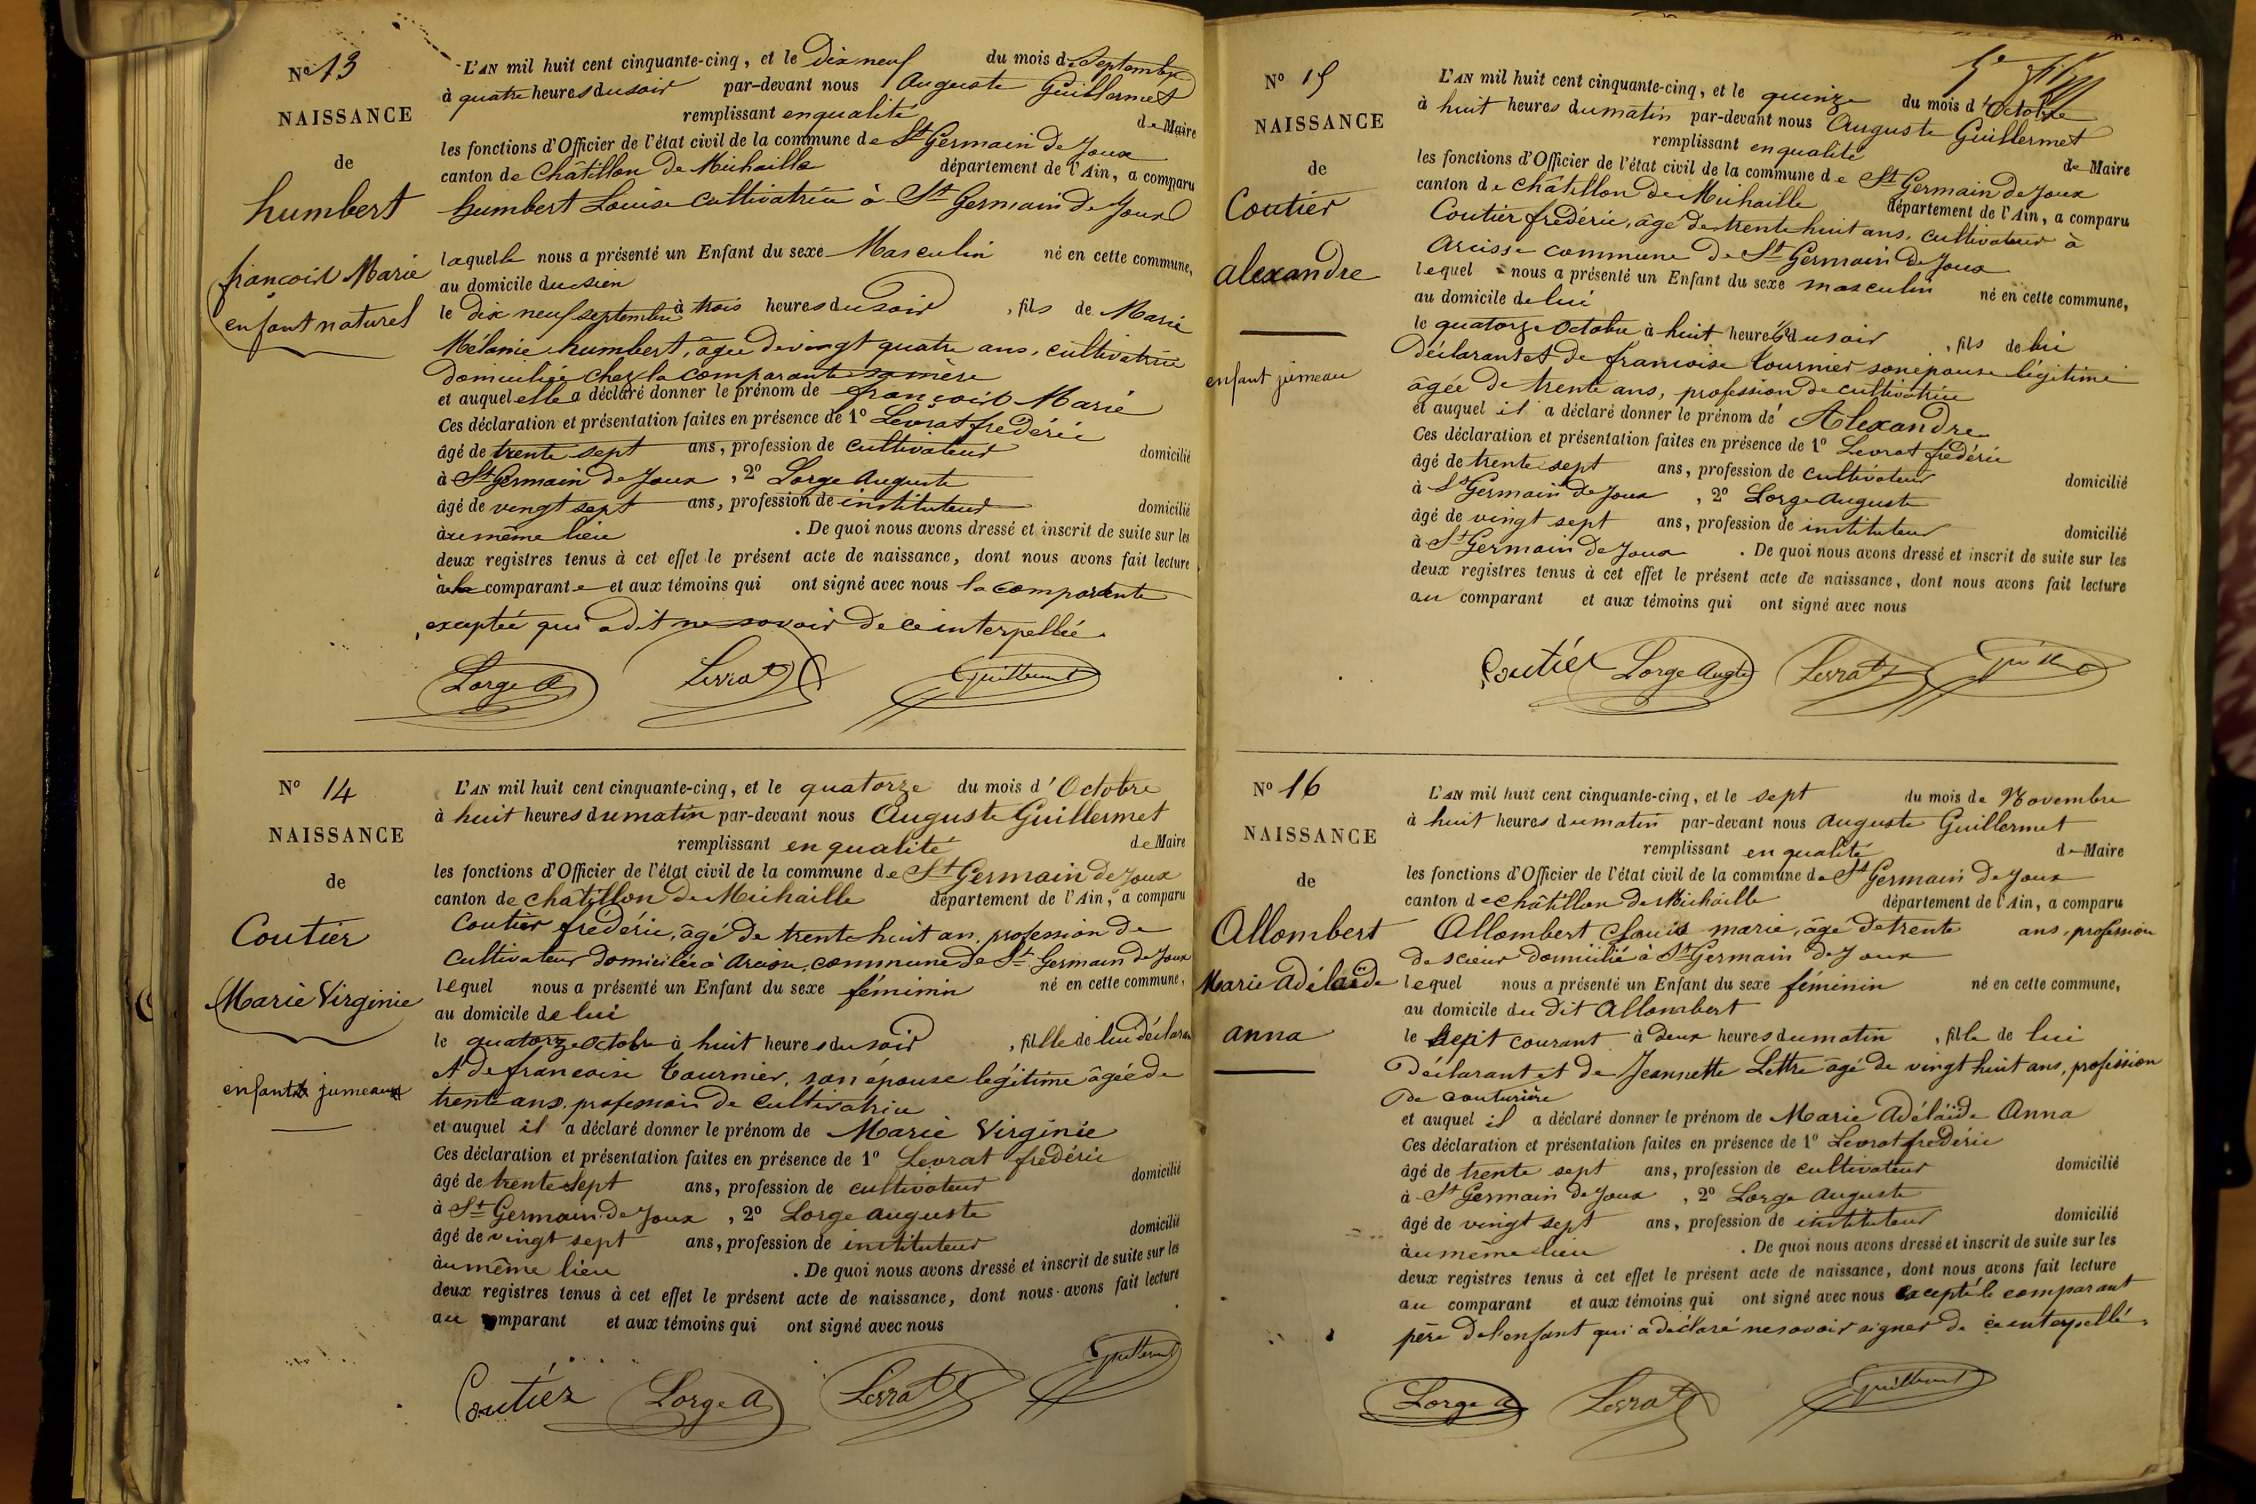 Nº 13
NAISSANCE
de
humbert
françois Marie
enfant naturel
L'AN mil huit cent cinquante-cinq, et le Dix neuf du mois de Septembre
à quatre heures du soir par-devant nous Auguste Guillermet
remplissant en qualité de Maire
les fonctions d'Officier de l'état civil de la commune de St Germain de Joux
canton de Châtillon de Michaille département de l'Ain, a comparu
humbert Louise cultivatrice à St Germain de Joux
laquelle nous a présenté un Enfant du sexe Masculin né en cette commune,
au domicile du sien
le dix neuf septembre à trois heures du soir, fils de Marie
Mélanie humbert, âgée de vingt quatre ans, cultivatrice
domiciliée chez la comparante sa mère
et auquel elle a déclaré donner le prénom de françois Marie
Ces déclaration et présentation faites en présence de 1º Levrat frédéric
âgé de trente sept ans, profession de cultivateur domicilié
à St Germain de Joux, 2º Lorge Auguste
âgé de vingt sept ans, profession de instituteur domicilié
au même lieu. De quoi nous avons dressé et inscrit de suite sur les
deux registres tenus à cet effet le présent acte de naissance, dont nous avons fait lecture
à la comparante et aux témoins qui ont signé avec nous la comparante
exceptée qui a dit ne savoir de ce interpellée.
Lorge A Levrat Guillermet
Nº 14
NAISSANCE
de
Coutier
Marie Virginie
enfants jumeaux
L'AN mil huit cent cinquante-cinq, et le quatorze du mois d'Octobre
à huit heures du matin par-devant nous Auguste Guillermet
remplissant en qualité de Maire
les fonctions d'Officier de l'état civil de la commune de St Germain de Joux
canton de châtillon de Michaille département de l'Ain, a comparu
Coutier frédéric, âgé de trente huit an, profession de
cultivateur domicilié à commune de St Germain de Joux
lequel nous a présenté un Enfant du sexe féminin né en cette commune,
au domicile de lui
le quatorze Octobre à huit heures du soir, fille de lui déclarant
et de francoise Tournier, son épouse légitime âgée de
trente ans, profession de cultivatrice
et auquel il a déclaré donner le prénom de Marie Virginie
Ces déclaration et présentation faites en présence de 1º Levrat frédéric
âgé de trente sept ans, profession de cultivateur domicilié
à St Germain de Joux, 2º Lorge auguste
âgé de vingt sept ans, profession de instituteur domicilié
au même lieu. De quoi nous avons dressé et inscrit de suite sur les
deux registres tenus à cet effet le présent acte de naissance, dont nous avons fait lecture
au comparant et aux témoins qui ont signé avec nous
Coutier Lorge A Levrat Guillermet
Nº 15
NAISSANCE
de
Coutier
alexandre
enfant jumeau
L'AN mil huit cent cinquante-cinq, et le quinze du mois d'Octobre
à huit heures du matin par-devant nous Auguste Guillermet
remplissant en qualité de Maire
les fonctions d'Officier de l'état civil de la commune de St Germain de Joux
canton de châtillon de Michaille département de l'Ain, a comparu
Coutier frédéric, âgé de trente huit ans, cultivateur à
commune de St Germain de Joux
lequel nous a présenté un Enfant du sexe masculin né en cette commune,
au domicile de lui
le quatorze Octobre à huit heures du soir, fils de lui
déclarant et de francoise Tournier son épouse légitime
âgée de trente ans, profession de cultivatrice
et auquel il a déclaré donner le prénom de Alexandre
Ces déclaration et présentation faites en présence de 1º Levrat frédéric
âgé de trente sept ans, profession de cultivateur domicilié
à St Germain de Joux, 2º Lorge Auguste
âgé de vingt sept ans, profession de instituteur domicilié
à St Germain de Joux. De quoi nous avons dressé et inscrit de suite sur les
deux registres tenus à cet effet le présent acte de naissance, dont nous avons fait lecture
au comparant et aux témoins qui ont signé avec nous
Coutier Lorge Augte Levrat
Nº 16
NAISSANCE
de
Allombert
Marie Adélaïde
anna
L'AN mil huit cent cinquante-cinq, et le sept du mois de Novembre
à huit heures du matin par-devant nous Auguste Guillermet
remplissant en qualité de Maire
les fonctions d'Officier de l'état civil de la commune de St Germain de Joux
canton de châtillon de Michaille département de l'Ain, a comparu
Allombert Louis marie, âgé de trente ans, profession
de scieur domicilié à St Germain de Joux
lequel nous a présenté un Enfant du sexe féminin né en cette commune,
au domicile du dit Allombert
le sept courant à deux heures du matin, fille de lui
Déclarant et de Jeannette Lettre âgé de vingt huit ans, profession
de couturière
et auquel il a déclaré donner le prénom de Marie Adélaïde Anna
Ces déclaration et présentation faites en présence de 1º Levrat frédéric
âgé de trente sept ans, profession de cultivateur domicilié
à St Germain de Joux, 2º Lorge Auguste
âgé de vingt sept ans, profession de instituteur domicilié
au même lieu. De quoi nous avons dressé et inscrit de suite sur les
deux registres tenus à cet effet le présent acte de naissance, dont nous avons fait lecture
au comparant et aux témoins qui ont signé avec nous excepté le comparant
père de l'enfant qui a déclaré ne savoir signer de ce interpellé.
Lorge A Levrat Guillermet